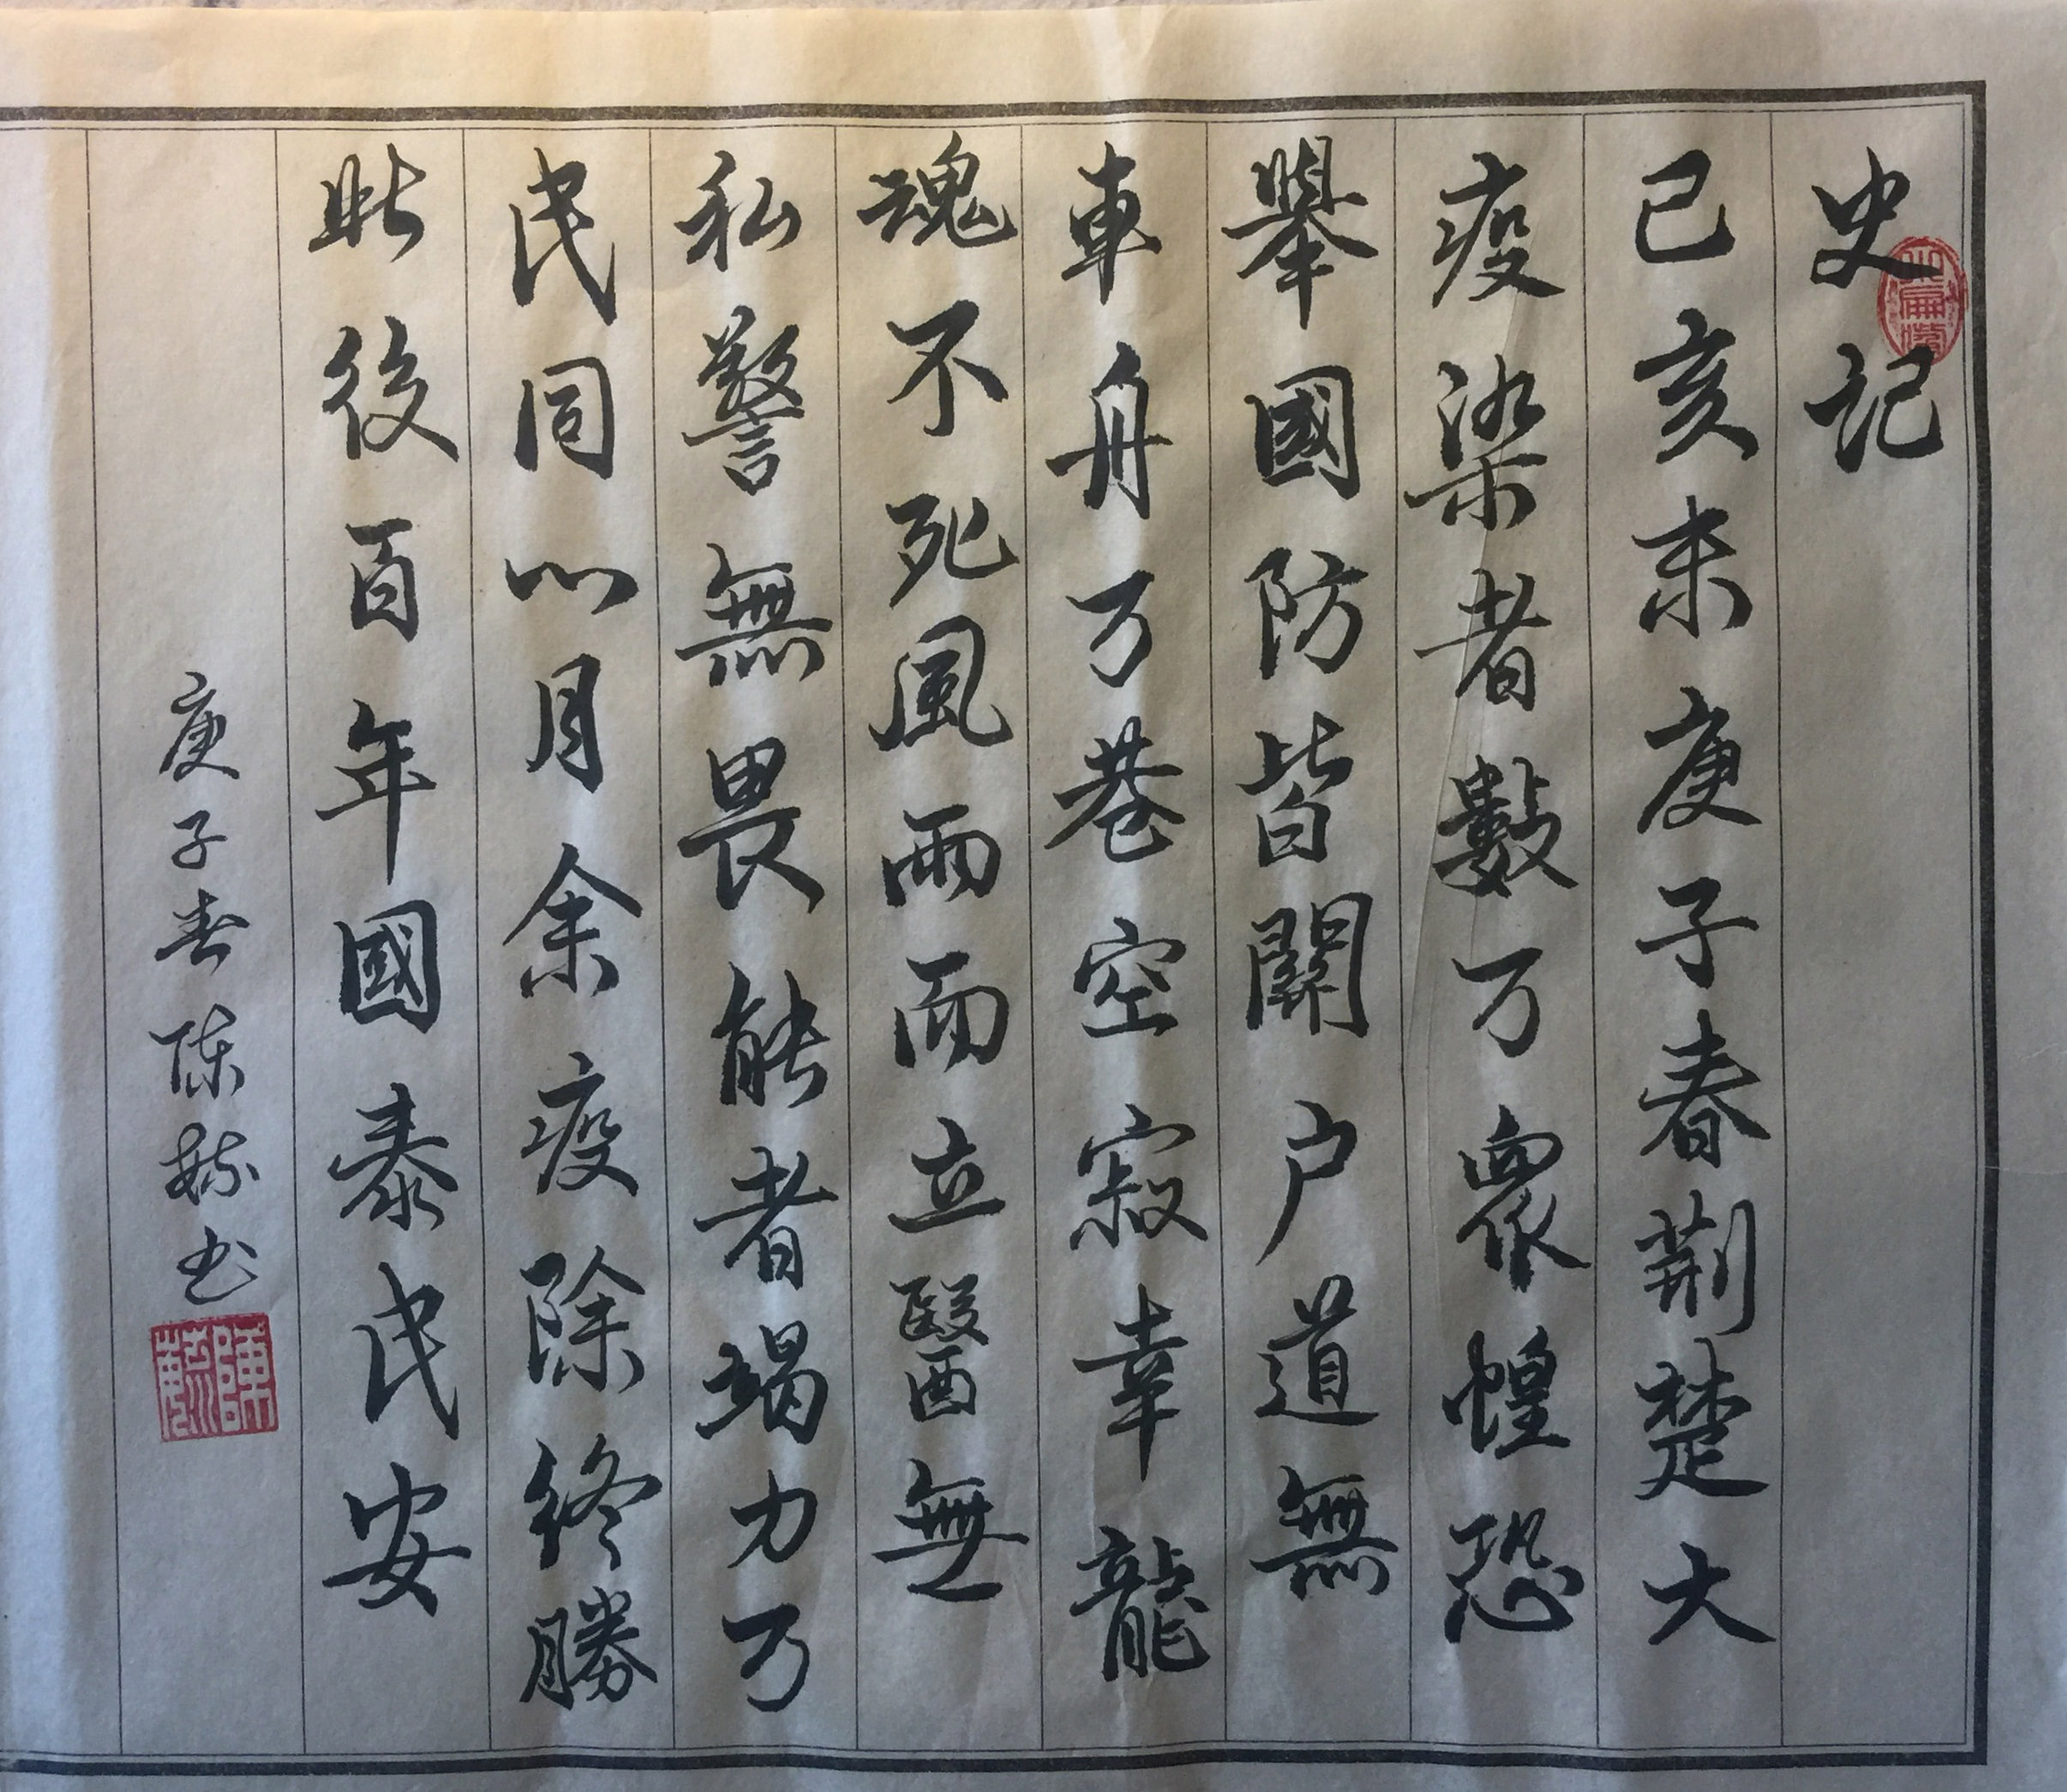 史记
己亥末庚子春荆楚大
疫染者數万衆惶恐
舉國防皆閉户道無
車舟万巷空寂幸龍
魂不死風雨而立醫無
私警無畏能者竭力万
民同心月余疫除終勝
此後百年國泰民安
庚子春陈毓书